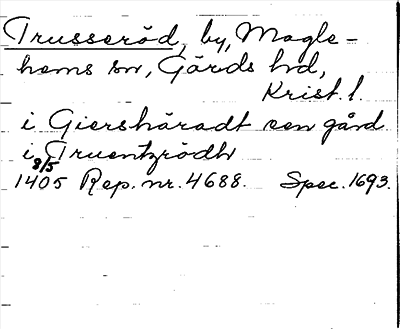 Trusseröd, by, Magle-
hems sn, Gärds hd,
Krist. l.
i Giershäradt een gård
i Truentzrödh
8/5
1405 Rep. nr. 4688. Spec. 1693.